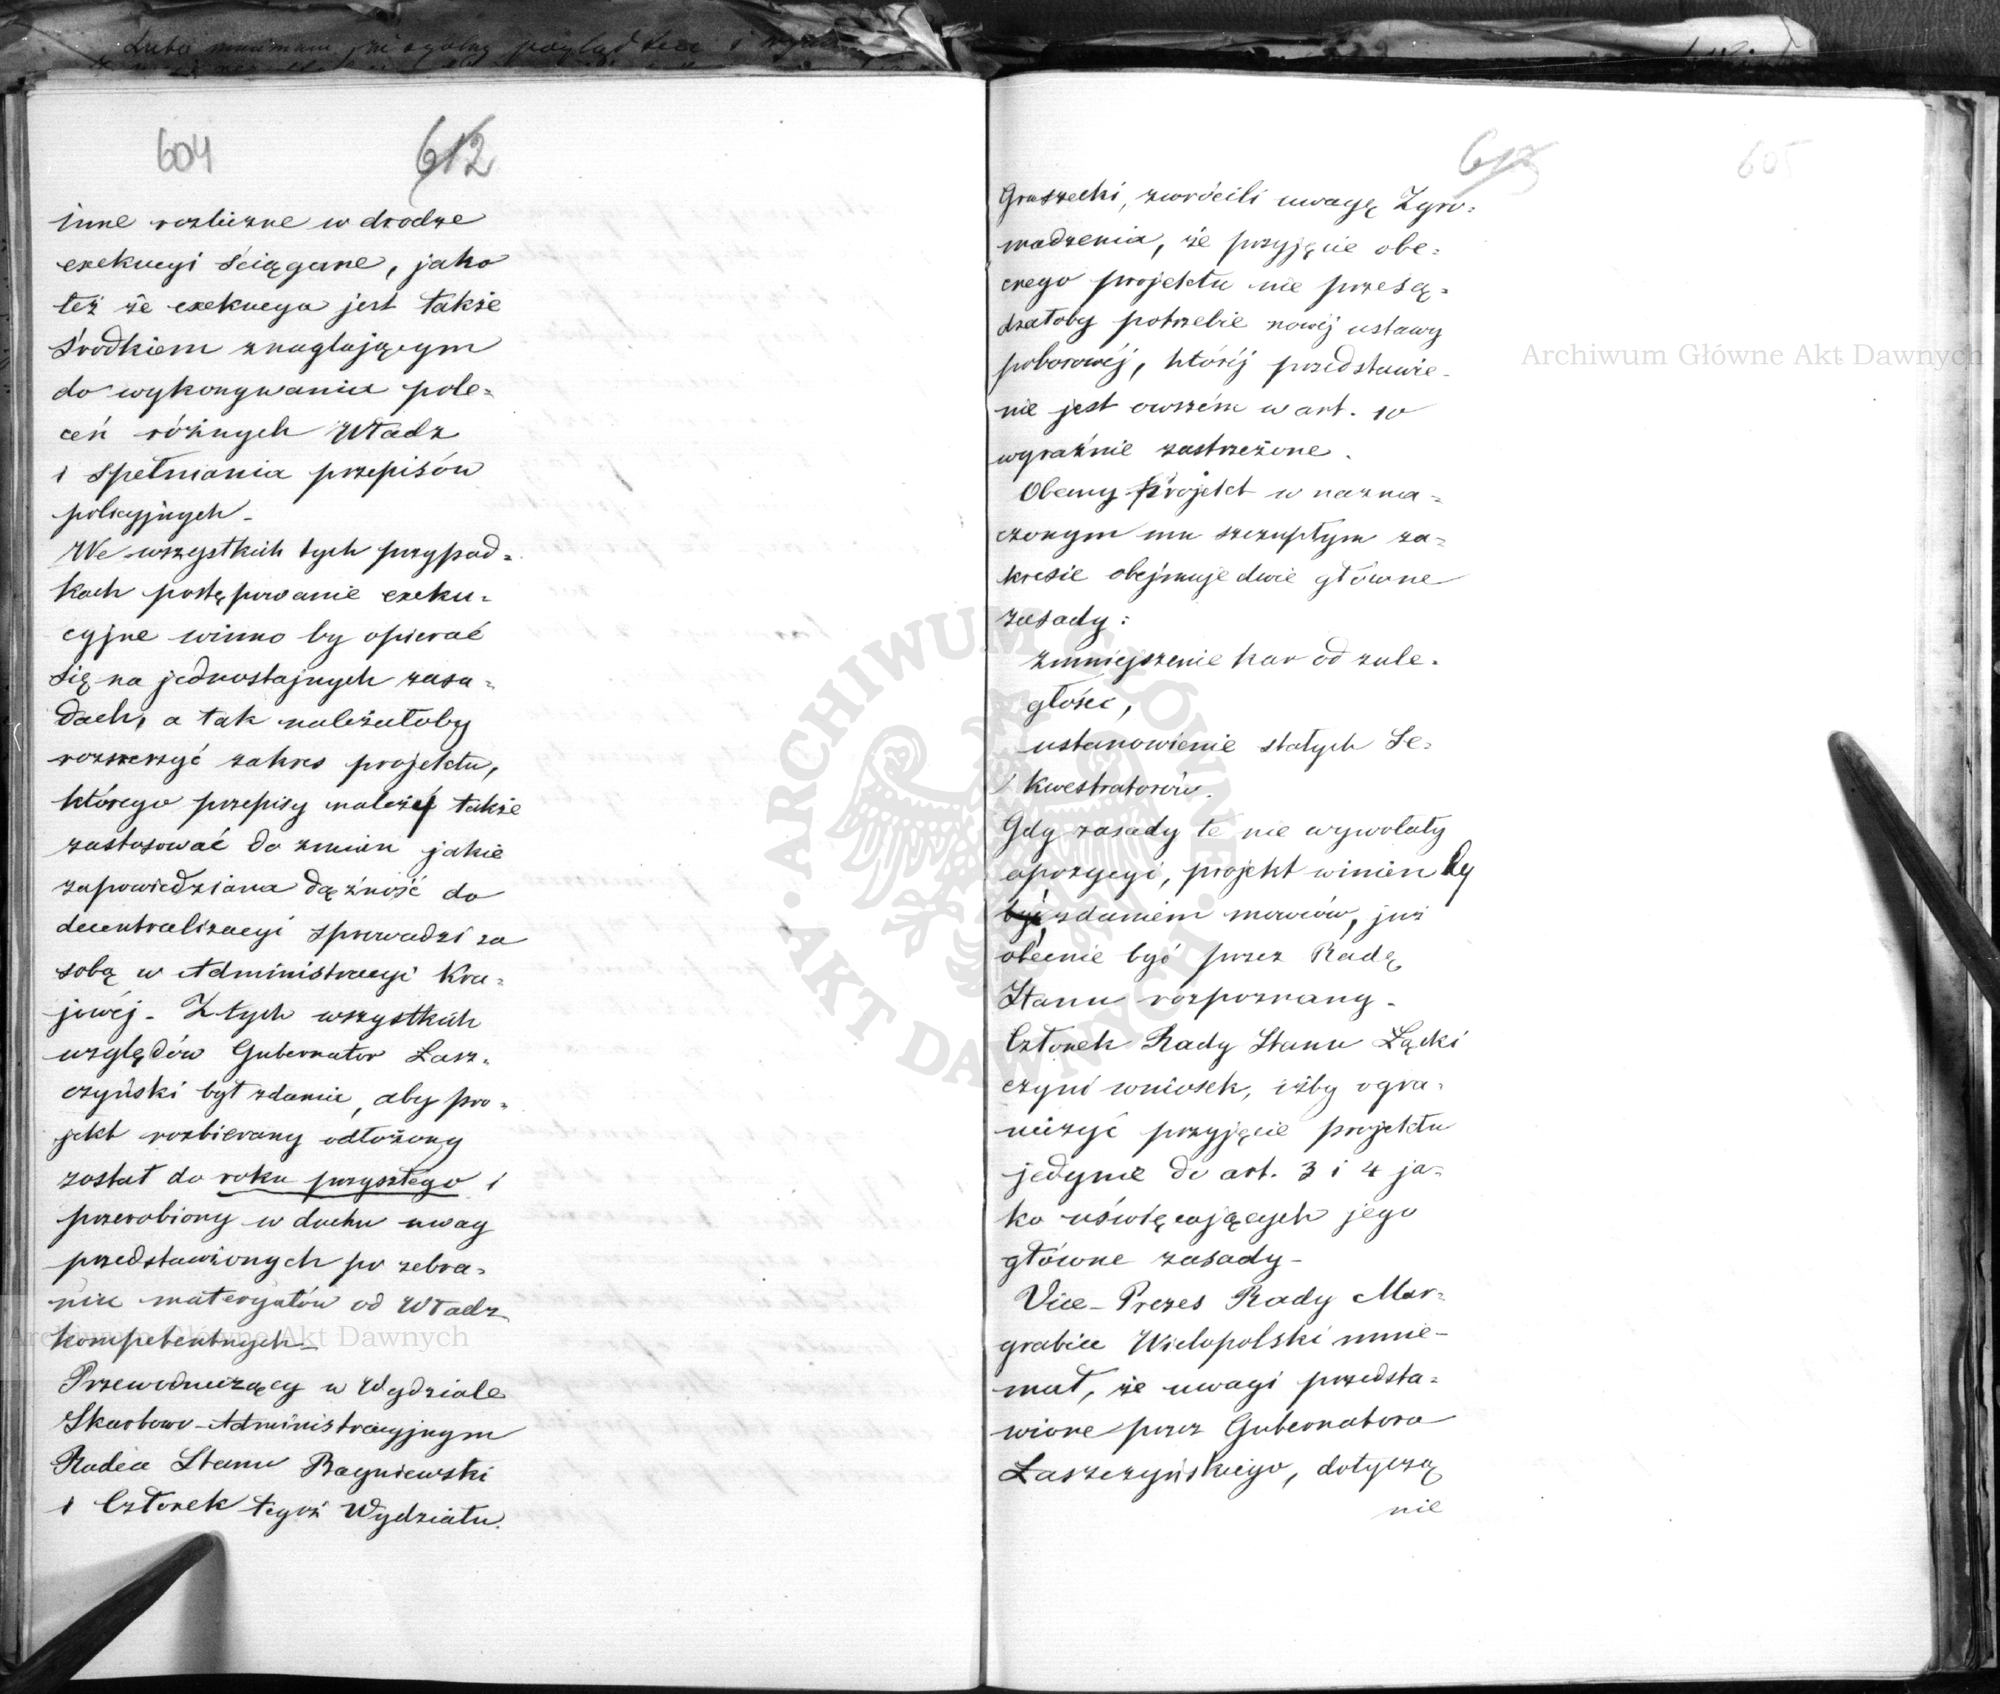 604
612
inne rozliczne w drodze
exekucyi ściągane, jako
też że exekucya jest także
środkiem znaglającym
do wykonywania pole=
ceń różnych Władz
i spełniania przepisów
policyjnych -
We wszystkich tych przypad=
kach postępowanie exeku=
cyjne winno by opierać
się na jednostajnych zasa=
dach, a tak należałoby
rozszerzyć zakres projektu,
którego przepisy należy także
zastosować do zmian jakie
zapowiedziana dążność do
decentralizacyi sprowadzi za
sobą w Administracyi Kra=
jowéj - Z tych wszystkich
względów Gubernator Łasz=
czyński był zdania, aby pro=
jekt rozbierany odłożony
został do roku przyszłego i
przerobiony w duchu uwag
przedstawionych po zebra=
niu materyałów od Władz
kompetentnych -
Przewodniczący w Wydziale
Skarbowo-Administracyjnym
Radca Stanu Bagniewski
i Członek tegoż Wydziału
613
605
Gruszecki, zwrócili uwagę Zgro=
madzenia, że przyjęcie obe=
cnego projektu nie przesą=
dzałoby potrzebie nowéj ustawy
poborowéj, któréj przedstawie=
nie jest owszem w art. 10
wyraźnie zastrzeżone.
Obecny Projekt w nazna=
czonym mu szczupłym za=
kresie obejmuje dwie główne
zasady:
zmniejszenie kar od zale=
głości,
ustanowienie stałych Se=
kwestratorów.
Gdy zasady te nie wywołały
opozycyi, projekt winien by
zdaniem mowców, już
obecnie być przez Radę
Stanu rozpoznany -
Członek Rady Stanu Łącki
czyni wniosek, iżby ogra=
niczyć przyjęcie projektu
jedynie do art. 3 i 4 ja=
ko uświęcających jego
główne zasady -
Vice-Prezes Rady Mar=
grabia Wielopolski mnie=
mał, że uwagi przedsta=
wione przez Gubernatora
Łaszczyńskiego, dotyczą
nie
Archiwum Główne Akt Dawnych
Archiwum Główne Akt Dawnych
ARCHIWUM GŁÓWNE
AKT DAWNYCH